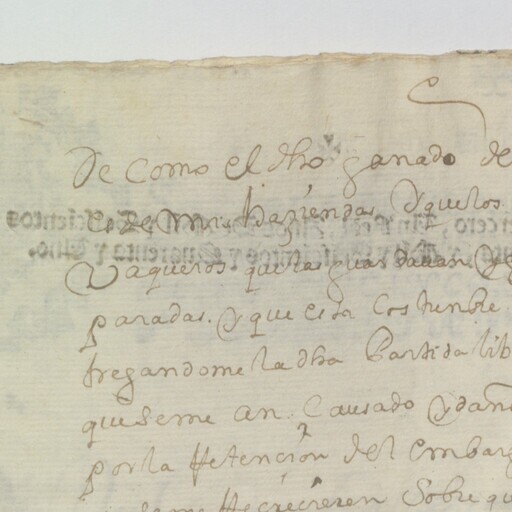 De como el dho ganado de
es de mis haziendas, Y que los
Vaqueros que las guardauan. Y
paradas. Y que esta costunbre
tregandome la dha Partida lib
que se me an Causado Y dan
por la Retencion del embarg
se me Recrecieren Sobre qu